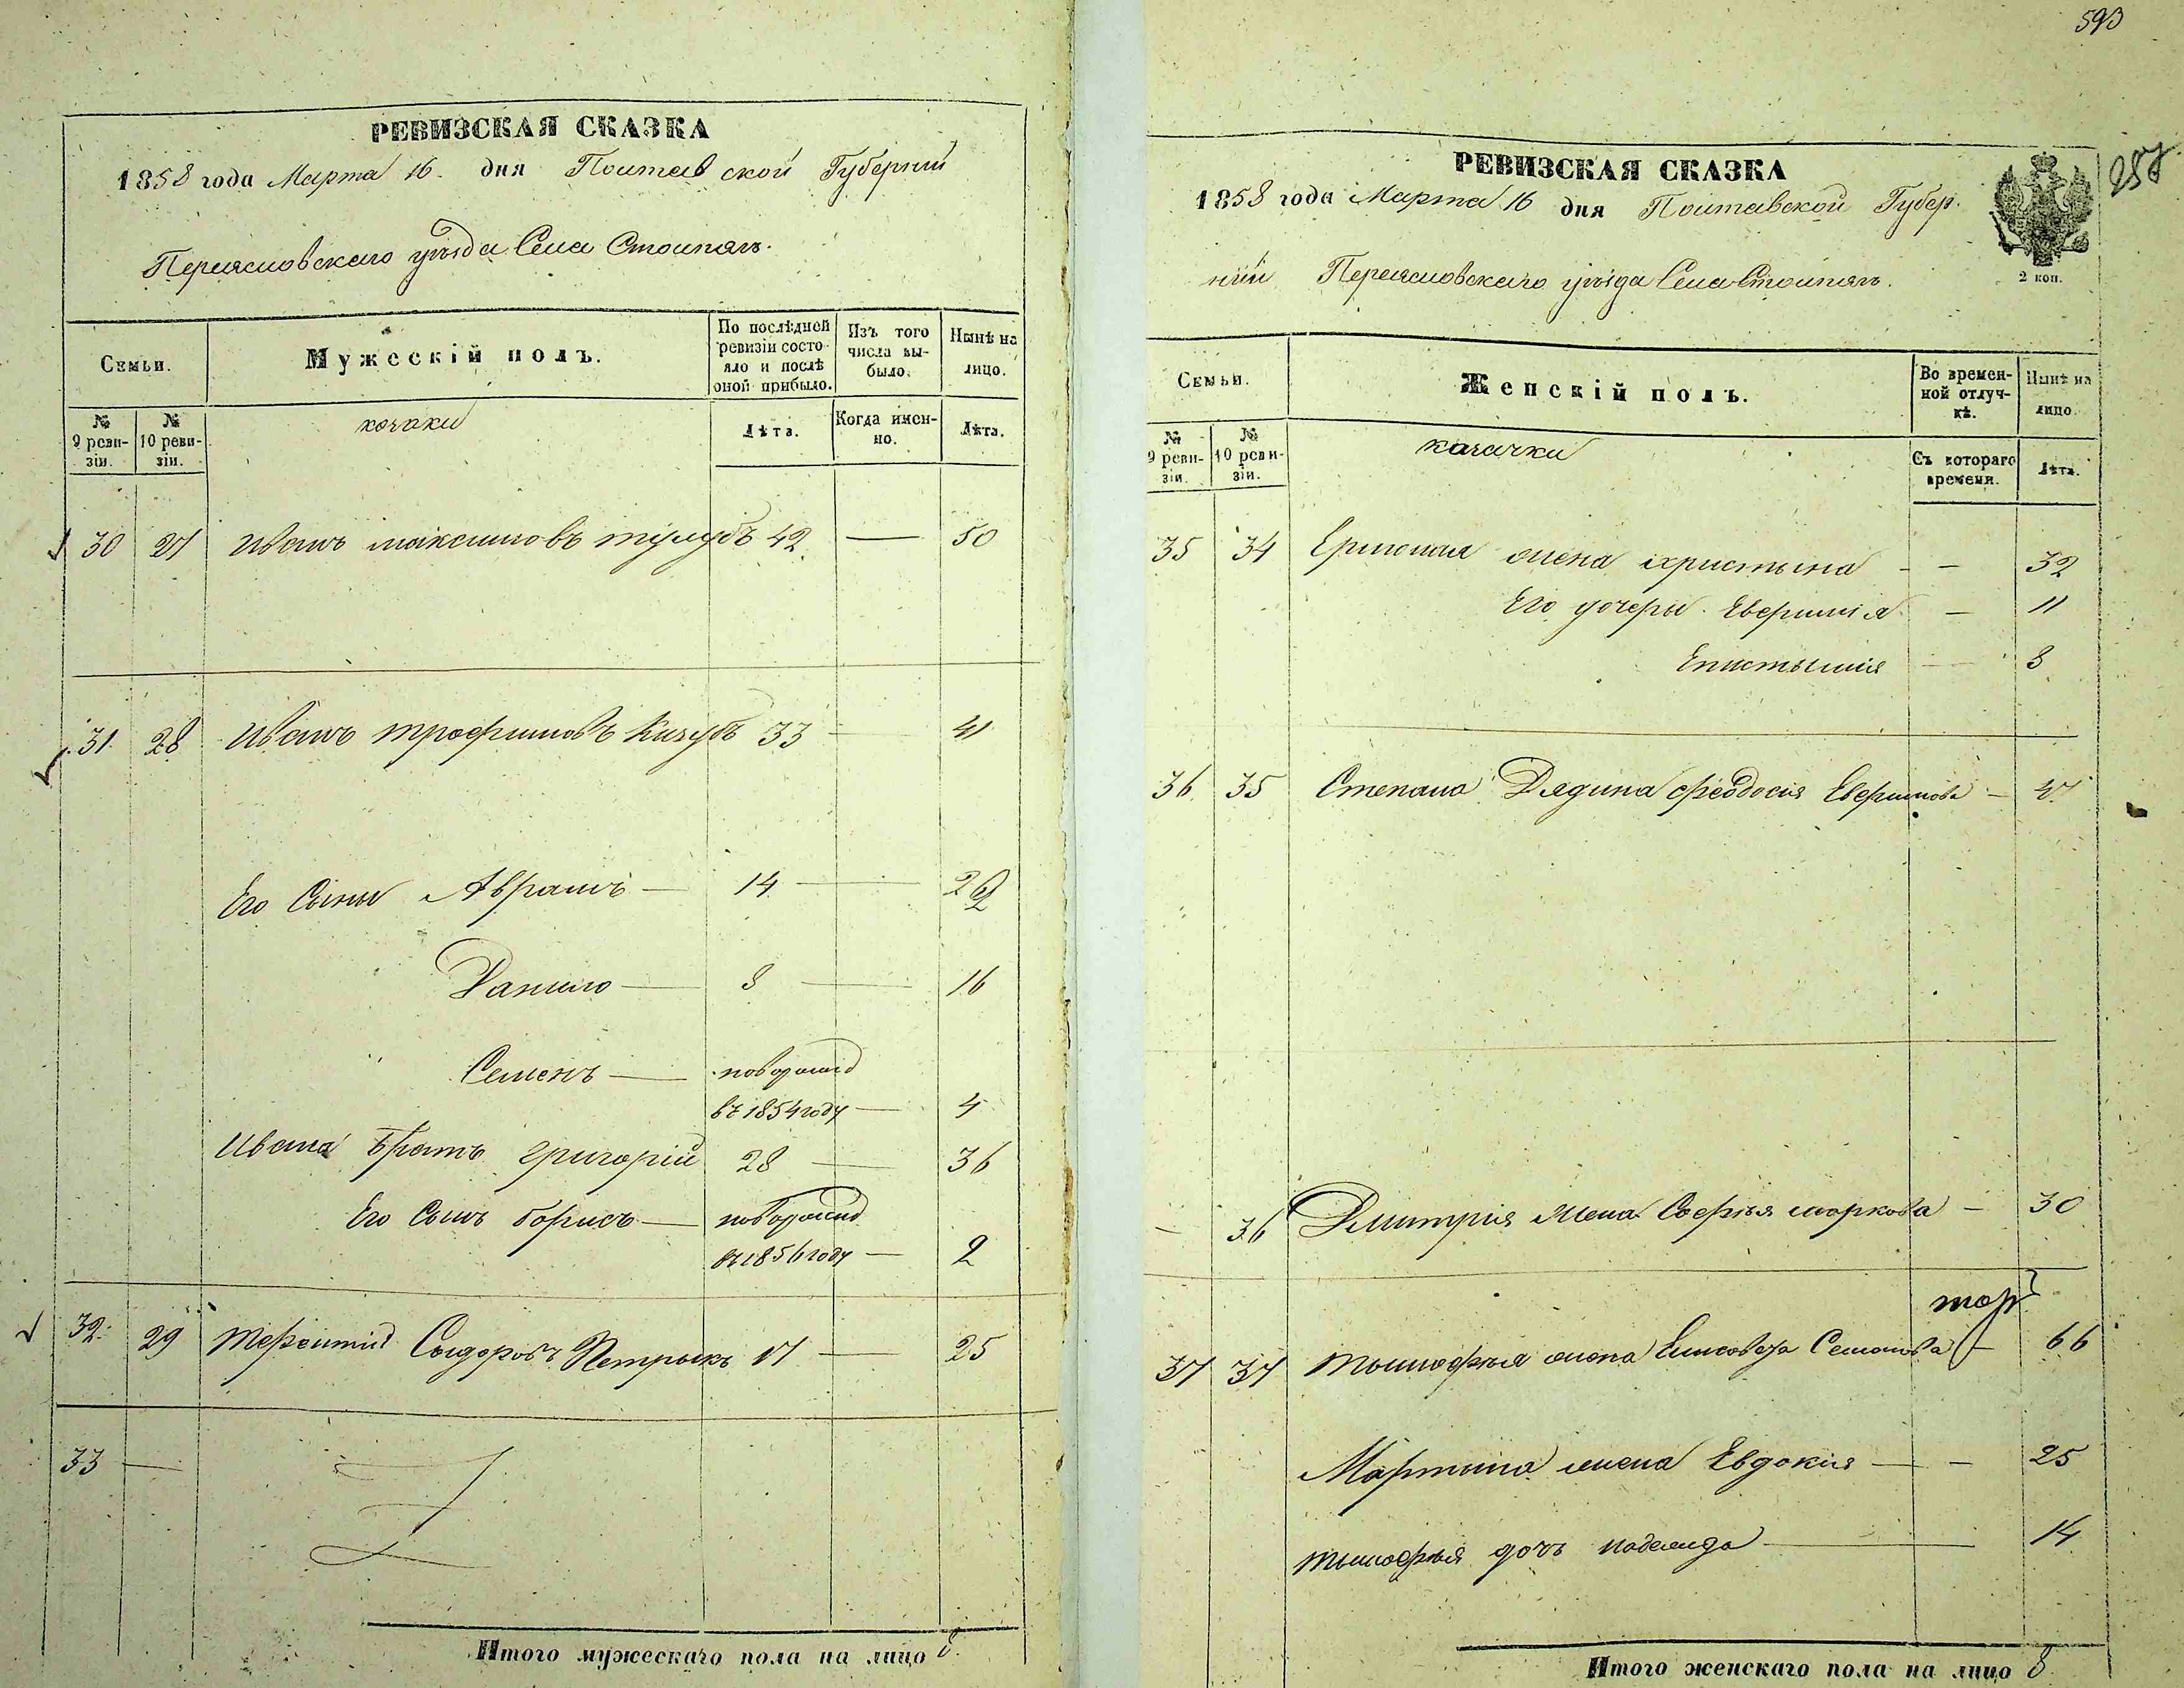 РЕВИЗСКАЯ СКАЗКА
1858 года Марта 16. дня Полтавской Губерніи
Переяславскаго уѣзда Села Столпягъ.
Семьи.
Мужескій полъ.
По послѣдней ревизіи состояло и послѣ оной прибыло.
Изъ того числа выбыло.
Нынѣ на лицо.
№ 9 ревизіи.
№ 10 ревизіи.
козаки
Лѣта.
Когда именно.
Лѣта.
30 27 Иванъ Максимовъ Тулубъ 42 — 50
31 28 Иванъ Трофимовъ Кизубъ 33 — 41
Его Сыны Аврамъ — 14 — 22
Данило — 8 — 16
Семенъ — новорожд
въ 1854 году — 4
Ивана братъ Григорій 28 — 36
Его Сынъ Борисъ — новорожд
въ 1856 году — 2
32 29 Терентій Сыдоровъ Петрыкъ 17 — 25
33 —
Итого мужескаго пола на лицо 8
593
257
РЕВИЗСКАЯ СКАЗКА
1858 года Марта 16 дня Полтавской Губер.
ніи Переяславскаго уѣзда Села Столпягъ.
2 коп.
Семьи.
Женскій полъ.
Во временной отлучкѣ.
Нынѣ на лицо.
№ 9 ревизіи.
№ 10 ревизіи.
казачки
Съ котораго времени.
Лѣта.
35 34 Ермолая жена Христына - - 32
Его дочеры Евфимія — 11
Епистымія — 8
36 35 Степана Дядина Феодосія Евфимова — 47
— 36 Дмитрія жена Софія Маркова — 30
37 37 Тымофѣя жена Елисавета Семенова — 66
Мартына жена Евдокія — — 25
Тымофѣя дочь Надежда — 14
Итого женскаго пола на лицо 8